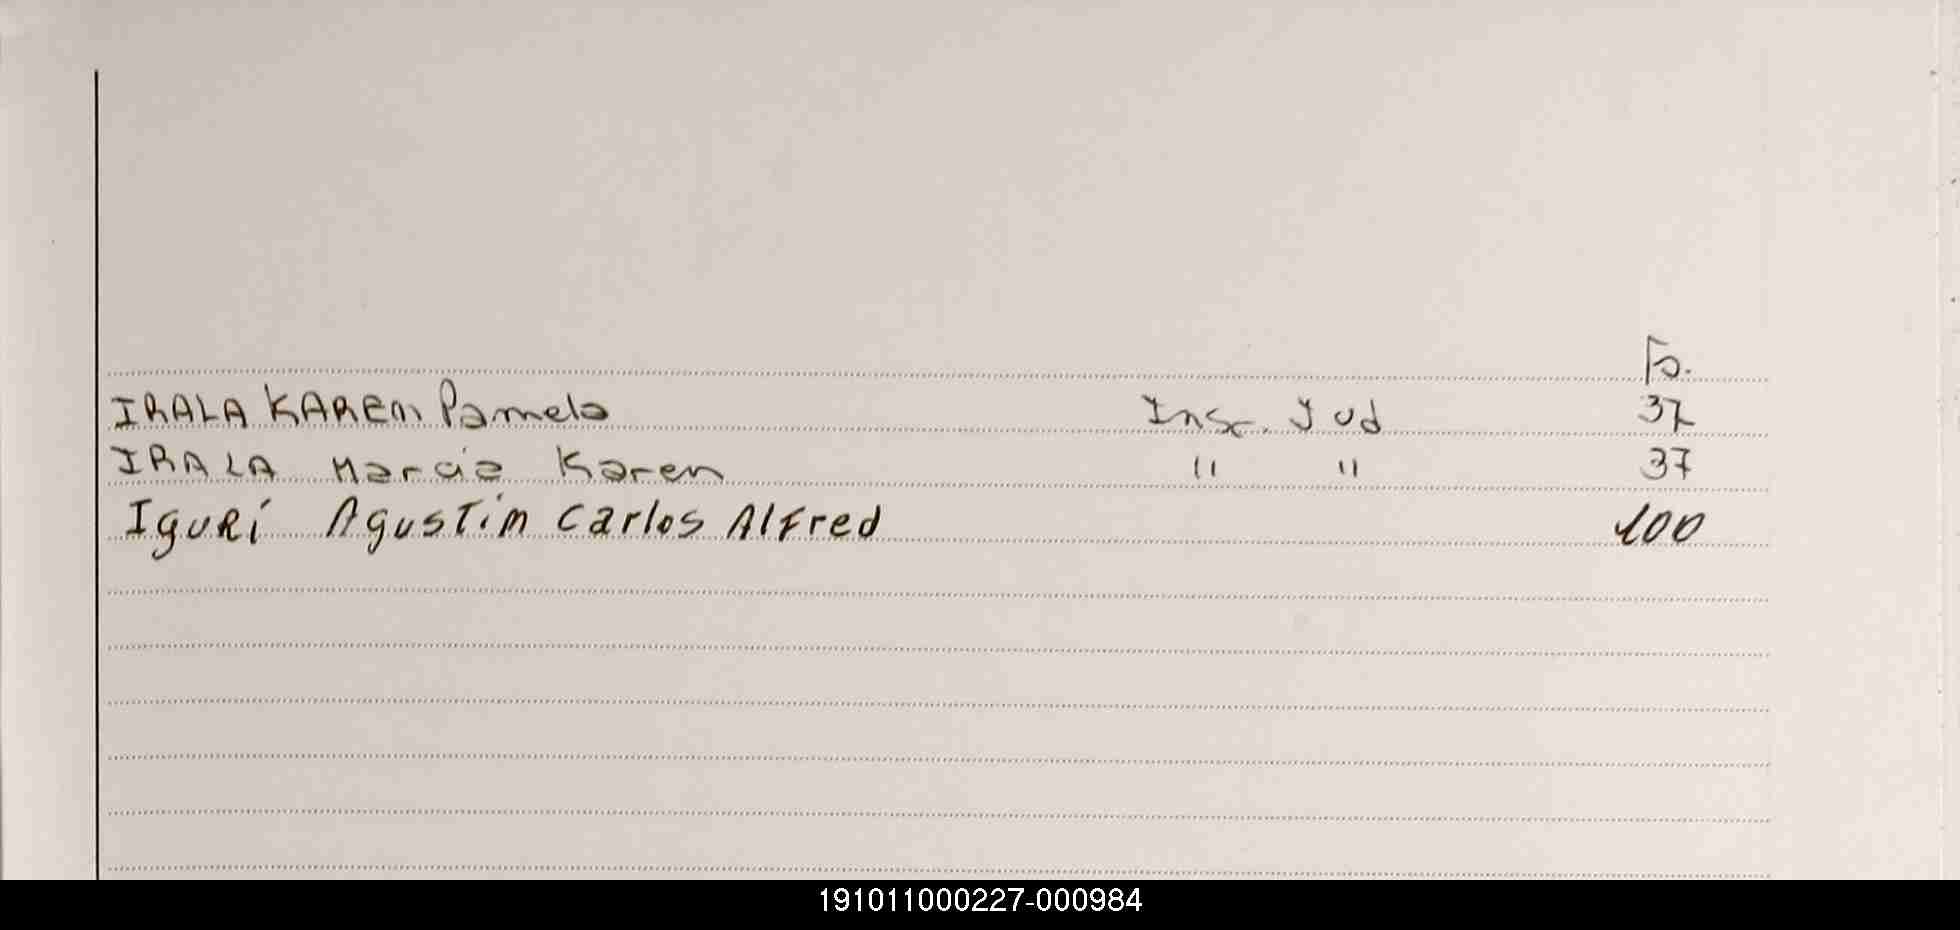 Fo.
IRALA KAREN Pamela Insc. Jud 37
IRALA Marcia Karen " " 37
IguRí AgusTín Carlos AlFred 100
191011000227-000984